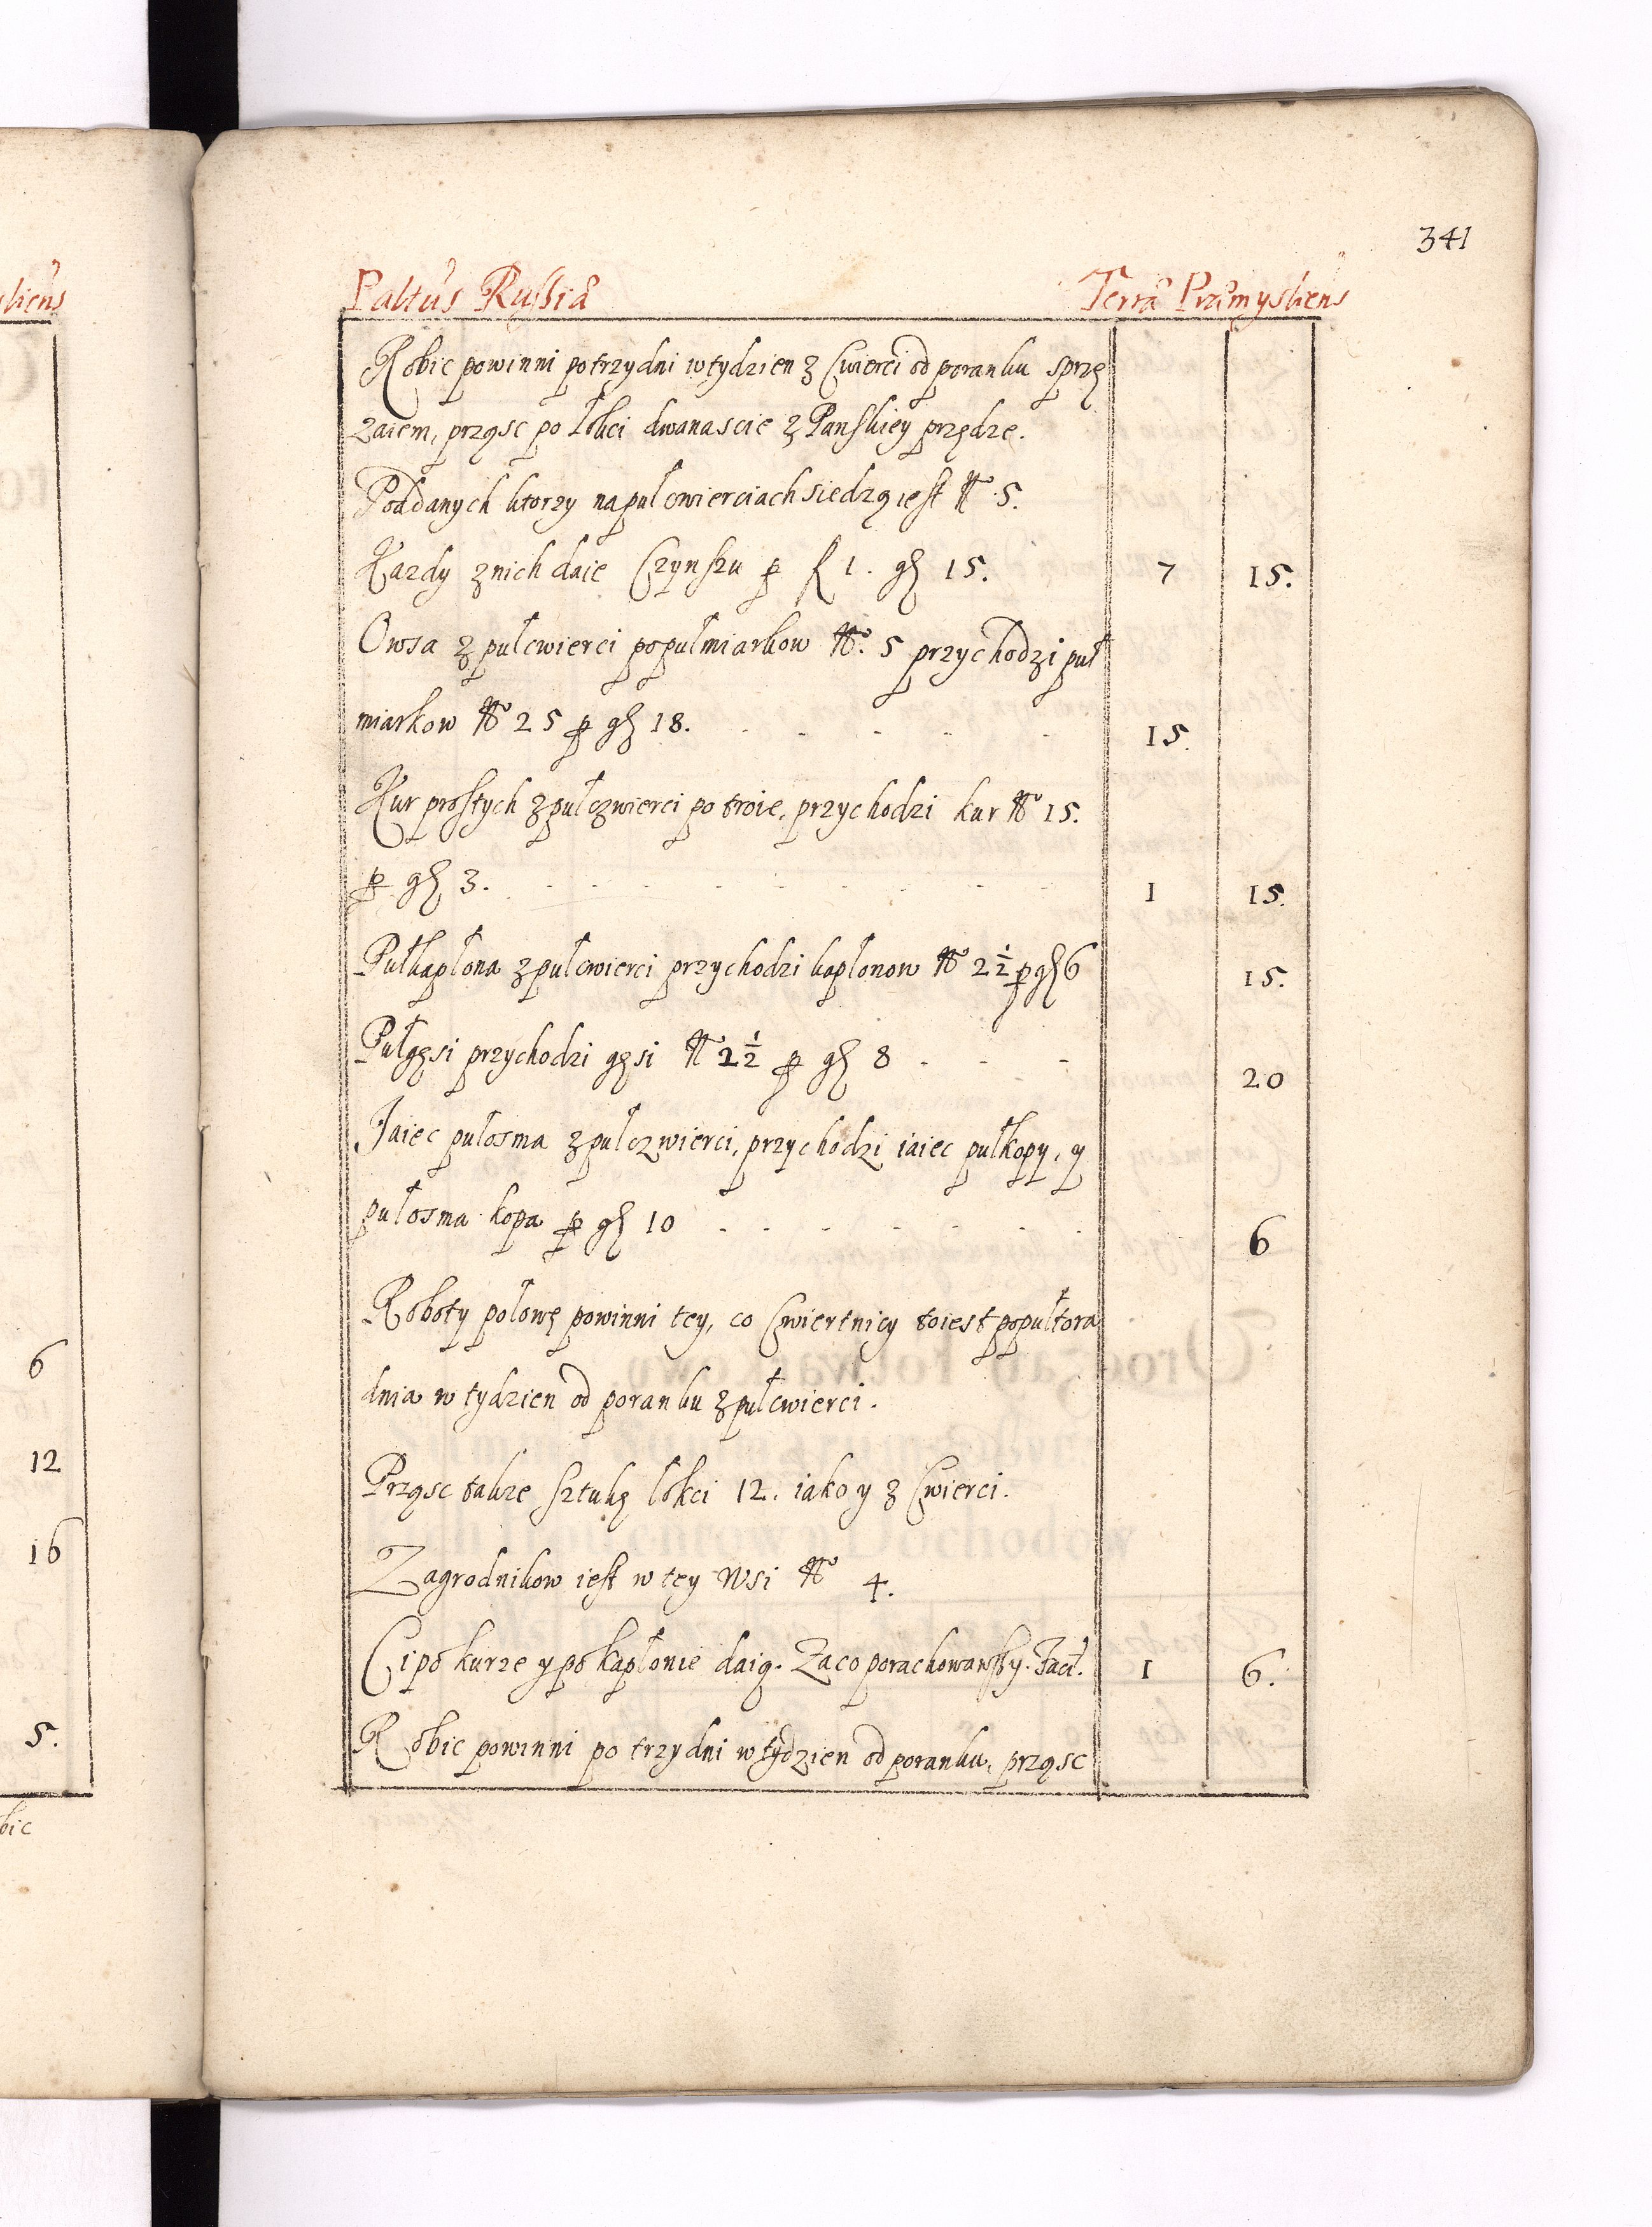 341
Paltus Russiæ Terræ Præmysliens
Robic powinni po trzy dni w tydzien z Cwierci od poranku sprzę
zaiem, prząsc po Łokci dwanascie z Panskiey przędze.
Poddanych ktorzy na pułcwierciach siedzą iest No 5.
Kazdy z nich daie Czynszu p fl 1. gr 15. 7 15.
Owsa z pułcwierci po pułmiarkow No. 5 przychodzi puł
miarkow No 25 p gr 18. - - - - - 15.
Kur prostych z pułczwierci po troie, przychodzi kur No 15.
p gr 3. - - - - - - - - - 1 15.
Pułkapłona z pułcwierci przychodzi kapłonow No 2½ p gr 6 15.
Pułgęsi przychodzi gęsi No 2½ p gr 8 - - - 20
Jaiec pułosma z pułczwierci, przychodzi iaiec pułkopy, y
pułosma kopa p gr 10 - - - - - - - 6
Roboty połowę powinni tey, co Cwiertnicy toiest po pułtora
dnia w tydzien od poranku z pułcwierci.
Prząsc takze sztukę łokci 12. iako y z Cwierci.
Zagrodnikow iest w tey Wsi No 4.
Ci po kurze y po kapłonie daią. Zaco porachowawszy. Facit. 1 6.
Robic powinni po trzy dni w tydzien od poranku, prząsc
6
12
16
5.